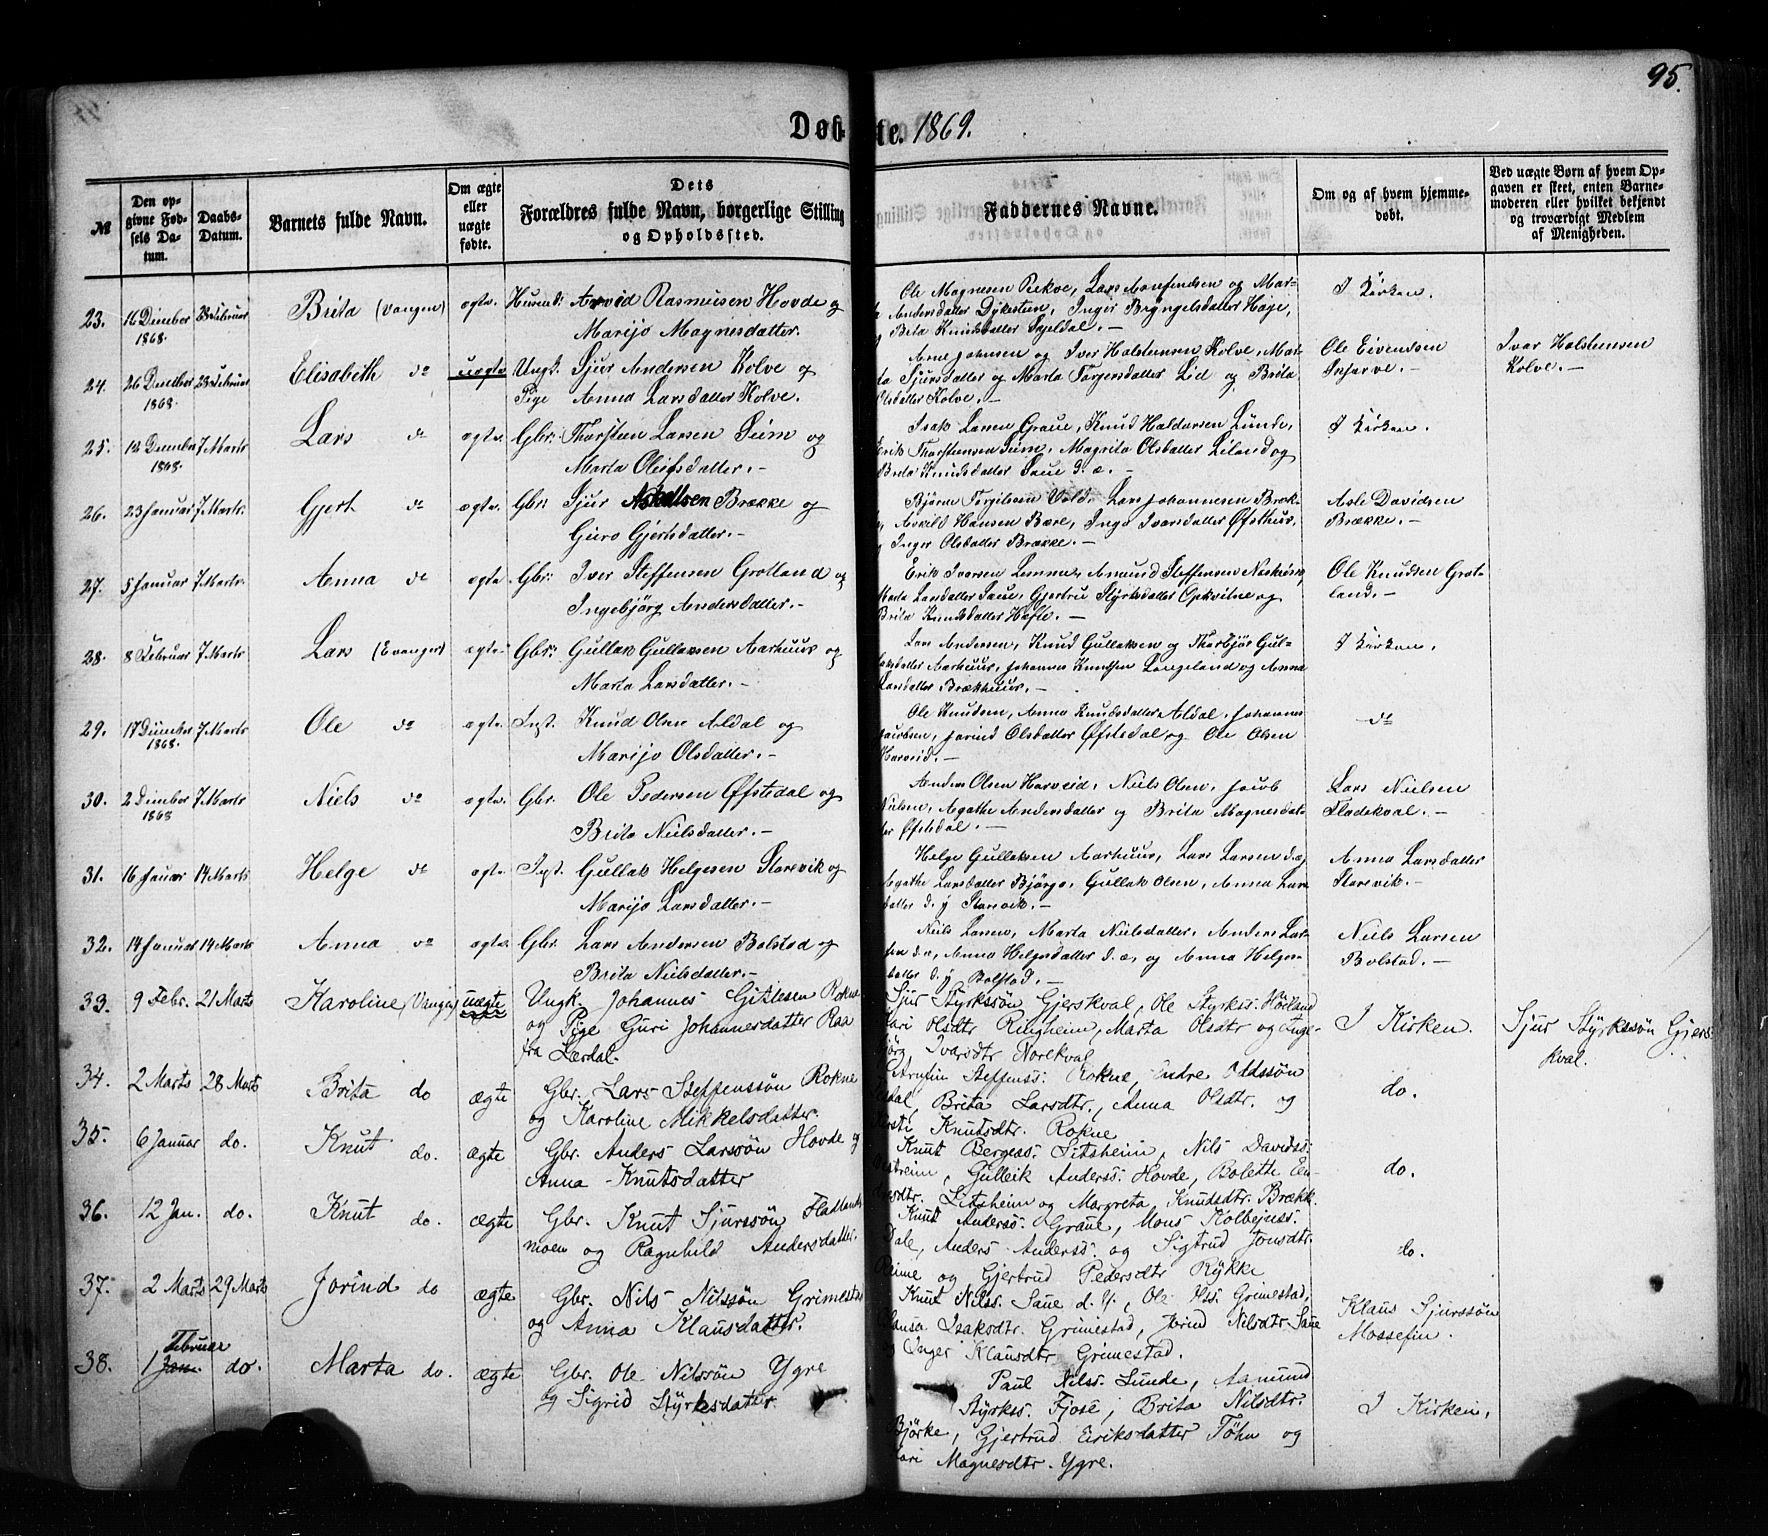 95.
Døbte. 1869.
№
Den opgivne Fødsels Datum.
Daabs-Datum.
Barnets fulde Navn.
Om ægte eller uægte fødte.
Dets Forældres fulde Navn, borgerlige Stilling og Opholdssted.
Faddernes Navne.
Om og af hvem hjemmedøbt.
Ved uægte Børn af hvem Opgaven er skeet, enten Barnemoderen eller hvilket bekjendt og troværdigt Medlem af Menigheden.
23. 16 Dcmber 1868. 28 Februar Brita (Vangen) ægte.
Arvid Rasmusen Hovde og
Marijo Magnesdatter.
Ole Magnesen Rekve, Lars
Andersdatter Dykesten, Inger Bryngelsdatter
Brita Knudsdatter Skjeldal. —
I Kirken.
24. 26 Decmber 1868. Elisabeth do uægte
Ungk. Sjur Andersen Kolve og
Pige Anna Larsdatter Kolve.
Arne Johnsen og Iver Holstensen Kolve, Mar-
ta Sjursdatter og Marta Torgersdatter Lid og Brita
Olsdatter Kolve. —
Ole Eivendsen
Skjerve. —
Ivar Holstensen
Kolve. —
25. 12 Decmber 1868. 7 Marts Lars do ægte.
Gbr: Thorstein Larsen Seim og
Marta Oleifsdatter. —
Isak Larsen Graue, Knud Haldorsen Lunde,
Erik Thorstensen Seim, Magrita Olsdatter Liland og
Brita Knudsdatter Saue d. æ. —
I Kirken.
26. 23 Januar 7 Marts. Gjert do ægte.
Gbr: Sjur Askellsen Brække og
Guro Gjertsdatter. —
Bjørne Torgilsen Vold, Lars Johannesen Bræk-
ke, Askild Hansen Bære, Inga Ivarsdatter Øfsthus,
og Inger Olsdatter Brække. —
Asle Davidsen
Brække. —
27. 5 Januar 7 Marts. Anna do ægte.
Gbr: Iver Steffensen Grotland og
Ingebjørg Andersdatter. —
Erik Iversen Lemme, Amund Steffensen
Marta Larsdatter Saue, Gjertru Styrksdatter Opkvitne og
Brita Knudsdatter Hæfte. —
Ole Knudsen Grot-
land. —
28. 8 Februar 7 Marts Lars (Evanger) ægte.
Gbr: Gullak Gullaksen Aarhuus og
Marta Larsdatter. —
Lars Andersen, Knud Gullaksen og Thorbjør Gul-
laksdatter Aarhuus, Johannes Knutsen Langeland og Anna
Larsdatter Brækhuus. —
I Kirken.
29. 17 Dcmber 1868. 7 Marts Ole do ægte.
Inst. Knud Olsen Aldal og
Marijo Olsdatter. —
Ole Knudsen, Anna Knudsdatter Aldal, Johannes
Jacobsen, Jorind Olsdatter Øfstedal og Ole Olsen
Horveid. —
do
30. 2 Dcmber 1868 7 Marts Niels do ægte.
Gbr. Ole Pedersen Øfstedal og
Brita Nielsdatter. —
Anders Olsen Horveid, Niels Olsen, Jacob
Nielsen, Agathe Andersdatter og Brita Magnesdat-
ter Øfstedal. —
Lars Nielsen
Fladekval. —
31. 16 Januar 14 Marts Helge do ægte.
Inst. Gullak Helgesen Storevik og
Marijo Larsdatter. —
Helge Gullaksen Aarhuus, Lars Larsen d. æ,
Agathe Larsdatter Bjørgo, Gullak Olsen, Anna Lars-
datter d. y Storevik. —
Anna Larsdatter
Storevik. —
32. 14 Januar 14 Marts Anna do ægte.
Gbr. Lars Andersen Bolstad og
Brita Nielsdatter. —
Niels Larsen, Marta Nielsdatter, Anders Lar-
sen d. æ, Anna Helgesdatter d. æ, og Anna Helges-
datter d. y Bolstad. —
Niels Larsen
Bolstad. —
33. 9 Febr. 21 Marts Karoline (Vangen) uægte
Ungk. Johannes Gitlesen Rokne
og Pige Guri Johannesdatter Raa
fra Lærdal.
Sjur Styrkssøn Gjerskval, Ole Styrkss. Hæland
Kari Olsdtr Ringheim, Marta Olsdtr og Inge-
bjørg Ivarsdtr Norekval
I Kirken.
Sjur Styrkssøn Gjers-
kval.
34. 2 Marts 28 Marts Brita do ægte
Gbr. Lars Steffenssøn Rokne
og Karoline Mikkelsdatter.
Steffenss: Rokne, Endre Oddssøn
Brita Larsdtr., Anna Olsdtr. og
Knutsdtr. Rokne
do.
35. 6 Januar do. Knut do. ægte
Gbr. Anders Larssøn Hovde og
Anna Knutsdatter
Knut Bergess: Sitsheim, Nils Davidss:
Gulleik Anderss: Hovde, Bolette En-
dresdtr. Sitsheim og Margreta Knudsdtr. Brækk.
do.
36. 12 Jan. do. Knut do. ægte
Gbr. Knut Sjurssøn Flatlands-
moen og Ragnhild Andersdatter.
Knut Anderss: Graue, Mons Kolbejnss:
Dale, Anders Anderss: og Sigtrud Jonsdtr.
Reime og Gjertrud Pedersdtr Rykke
do.
37. 2 Marts 29 Marts Jorind do ægte
Gbr. Nils Nilssøn Grimestad
og Anna Klausdatter.
Knut Nilss. Saue d. Y., Ole Olss. Grimestad,
Isaksdtr. Grimestad, Jorind Nilsdtr Saue
og Inger Klausdtr Grimestad.
Klaus Sjurssøn
Mossefin.
38. 1 Februar do. Marta do. ægte
Gbr. Ole Nilssøn Ygre
og Sigrid Styrksdatter.
Paul Nilss. Lunde, Aamund
Styrkss. Fjose, Brita Nilsdtr.
Bjørke, Gjertrud Eiriksdatter Tøhn og
Kari Magnesdtr. Ygre.
I Kirken.